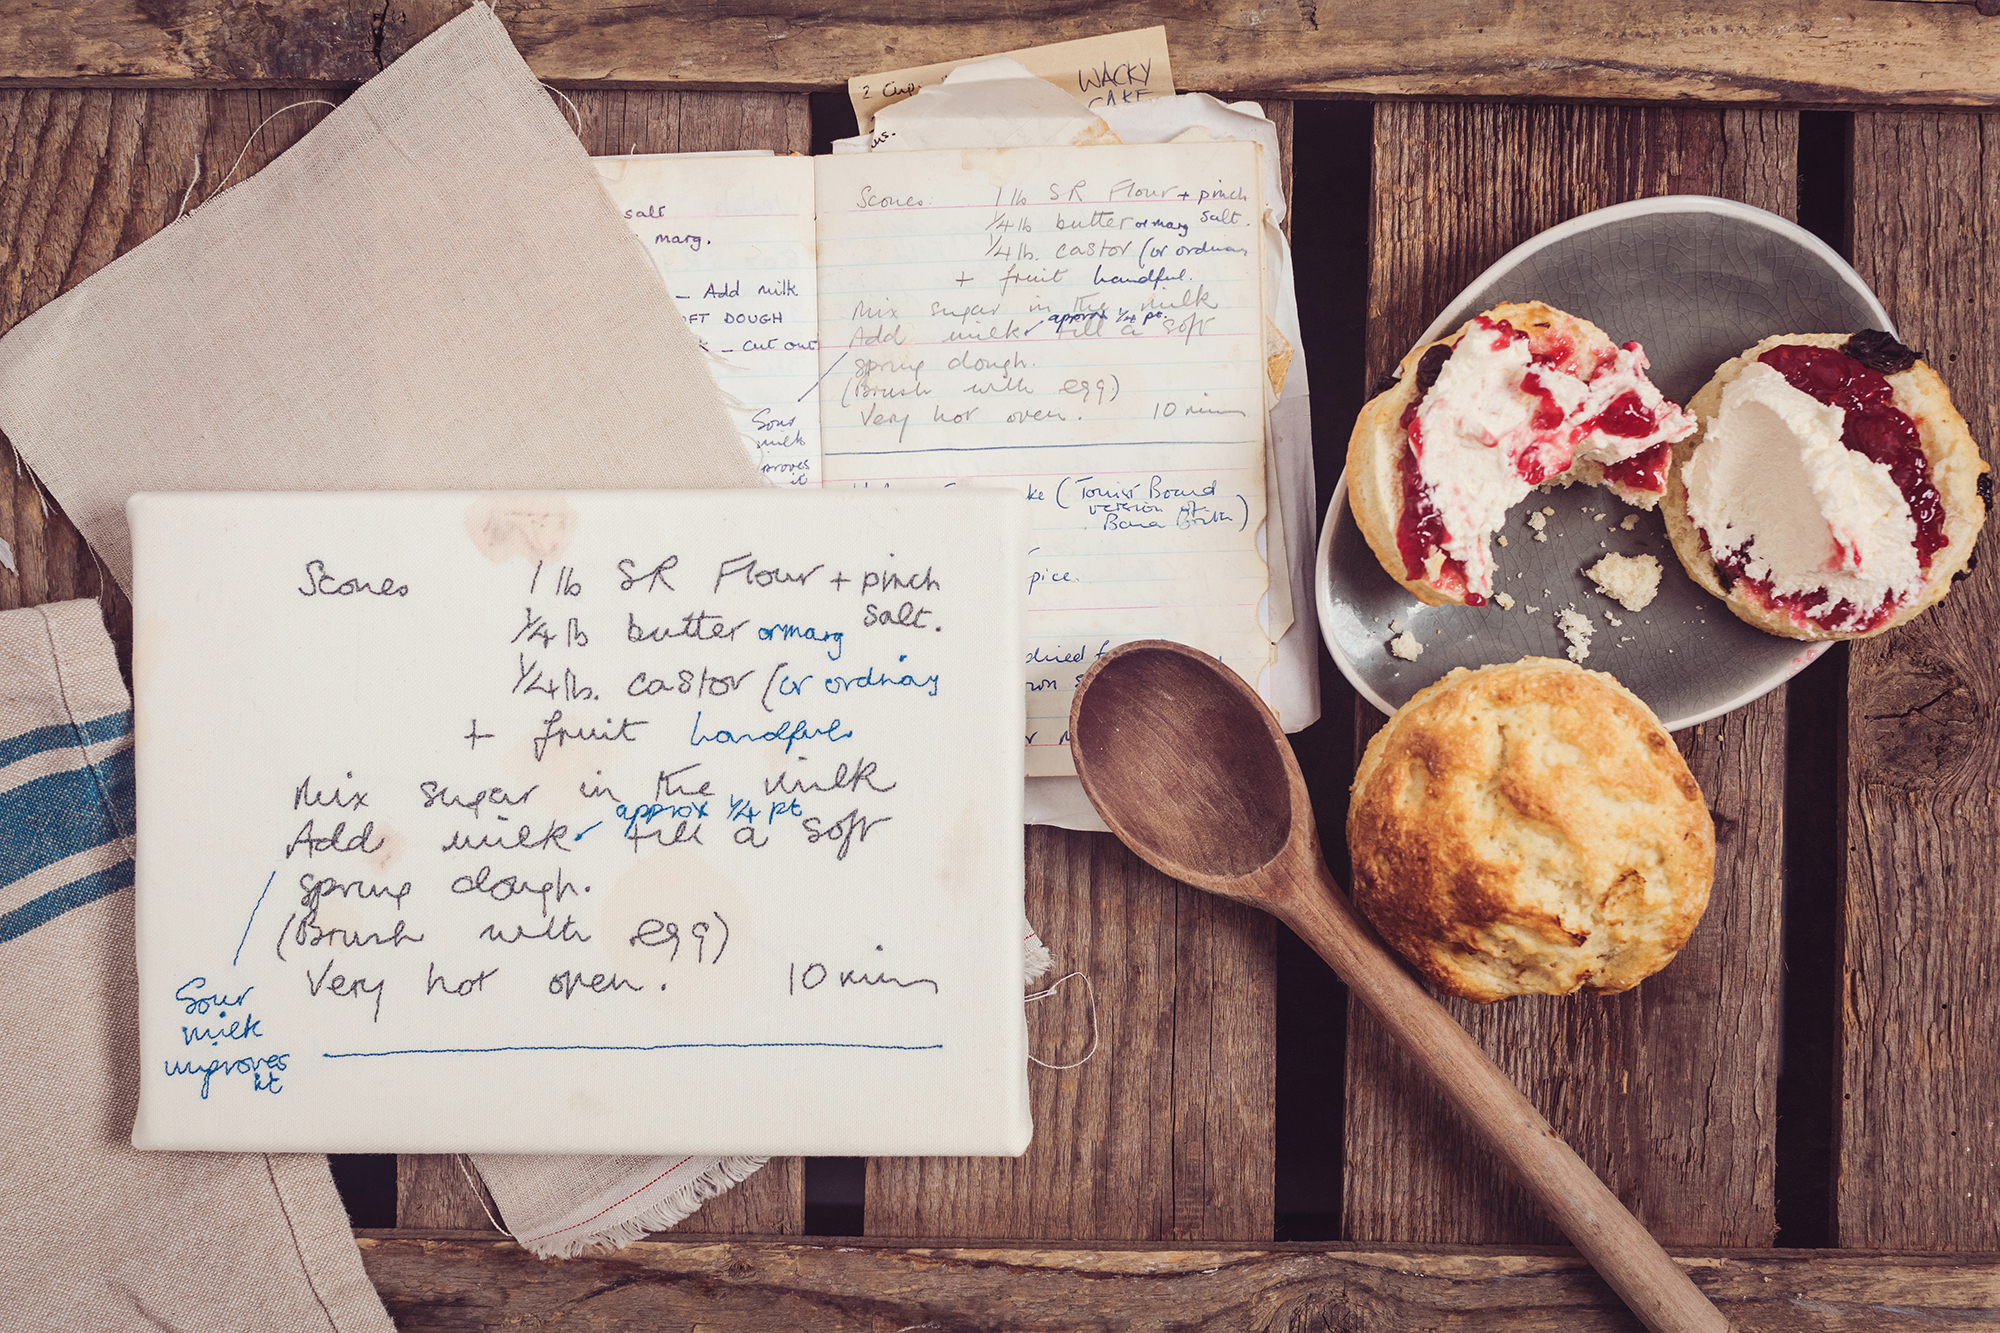 2 Cup
WACKY
CAKE
us.
salt
marg.
– Add milk
FT DOUGH
– cut out
Sour
milk
proves
it
Scones. 1 lb SR Flour + pinch
1/4 lb butter or marg salt.
1/4 lb. castor (or ordinary
+ fruit handful.
Mix sugar in the milk
approx 1/4 pt.
Add milk ✓ till a soft
spring dough.
(Brush with egg)
Very hot oven. 10 mins
ke (Tourist Board
version of
Bara Brith)
pice.
dried f
Scones 1 lb SR Flour + pinch
1/4 lb butter or marg salt.
1/4 lb. castor (or ordinary
+ fruit handful
Mix sugar in the milk
approx 1/4 pt
Add milk ✓ till a soft
spring dough.
(Brush with egg)
Very hot oven. 10 mins
Sour
milk
improves
it